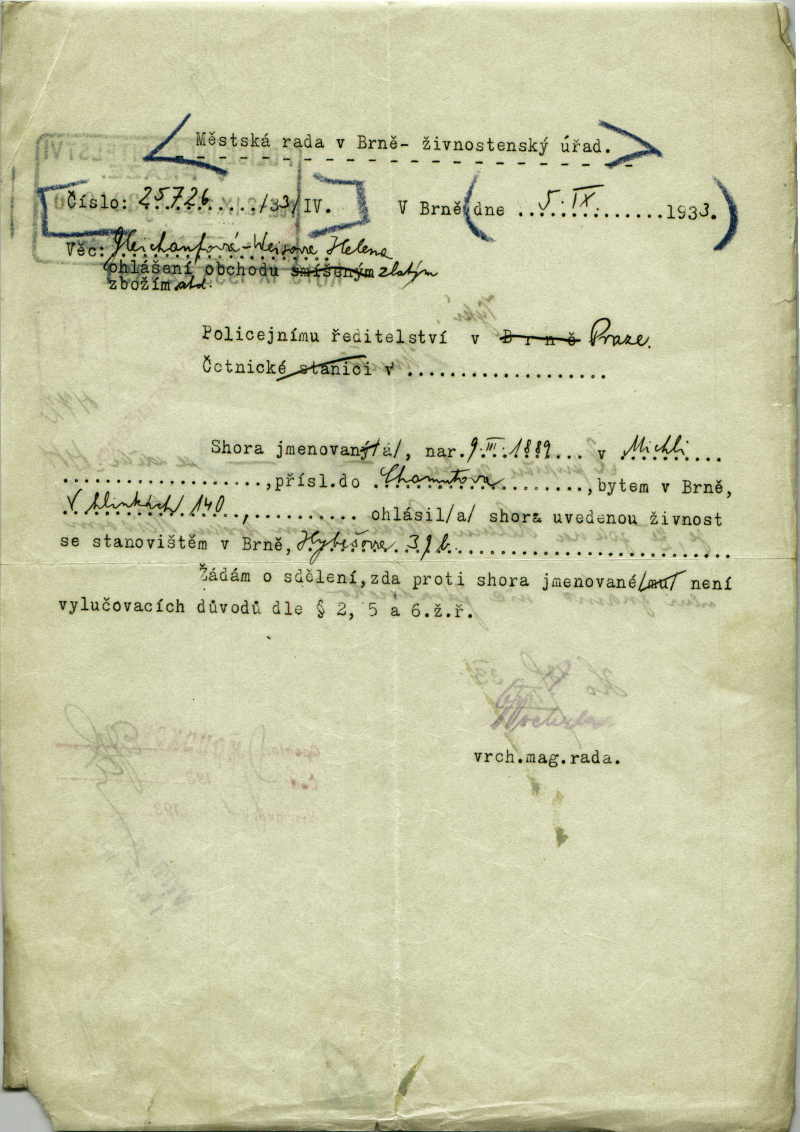 Městská rada v Brně- živnostenský úřad.
Číslo: 25726/33/IV. V Brně dne 5. IX. 1933.
Věc: Helena
ohlášení obchodu smíšeným zlatým
zbožím atd.
Policejnímu ředitelství v Brně Praze.
Četnické stanici v ....................
Shora jmenovaný/á/, nar. 9. III. 1889... v Michli....
..................,přísl.do Chomutova........,bytem v Brně,
V hlinkách 140.,.......... ohlásil/a/ shora uvedenou živnost
se stanovištěm v Brně, Hybešova
Žádám o sdělení, zda proti shora jmenované/mu/ není
vylučovacích důvodů dle § 2, 5 a 6.ž.ř.
vrch.mag.rada.